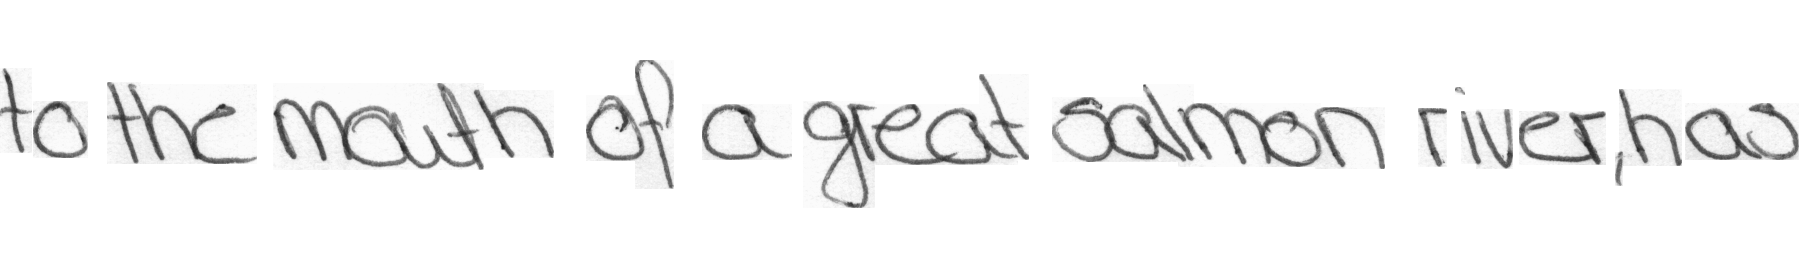 to the mouth of a great salmon river, has